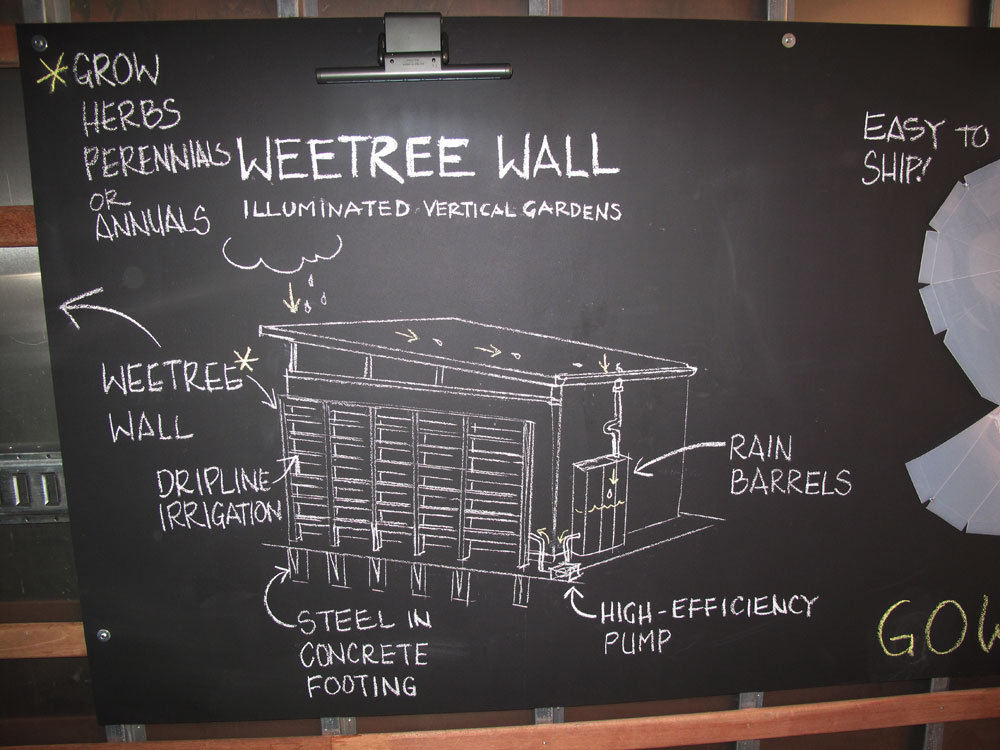 * GROW
HERBS
PERENNIALS
OR
ANNUALS
WEETREE WALL
ILLUMINATED VERTICAL GARDENS
EASY TO
SHIP!
WEETREE*
WALL
DRIPLINE
IRRIGATION
RAIN
BARRELS
STEEL IN
CONCRETE
FOOTING
HIGH-EFFICIENCY
PUMP